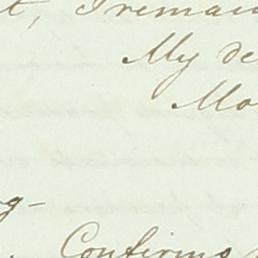 t, I remain
My de
Mo
g-
Confirms